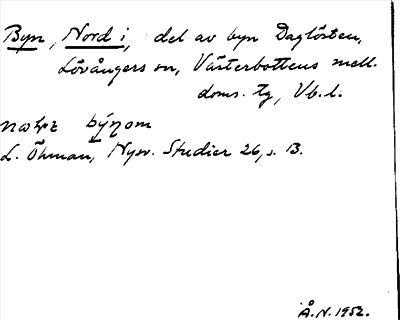 Byn, Nord i, del av byn Daglösten,
Lövångers sn, Västerbottens mell.
doms. tg, Vb. l.
býnom
L. Öhman, Nysv. Studier 26, s. 13.
Å.N. 1952.